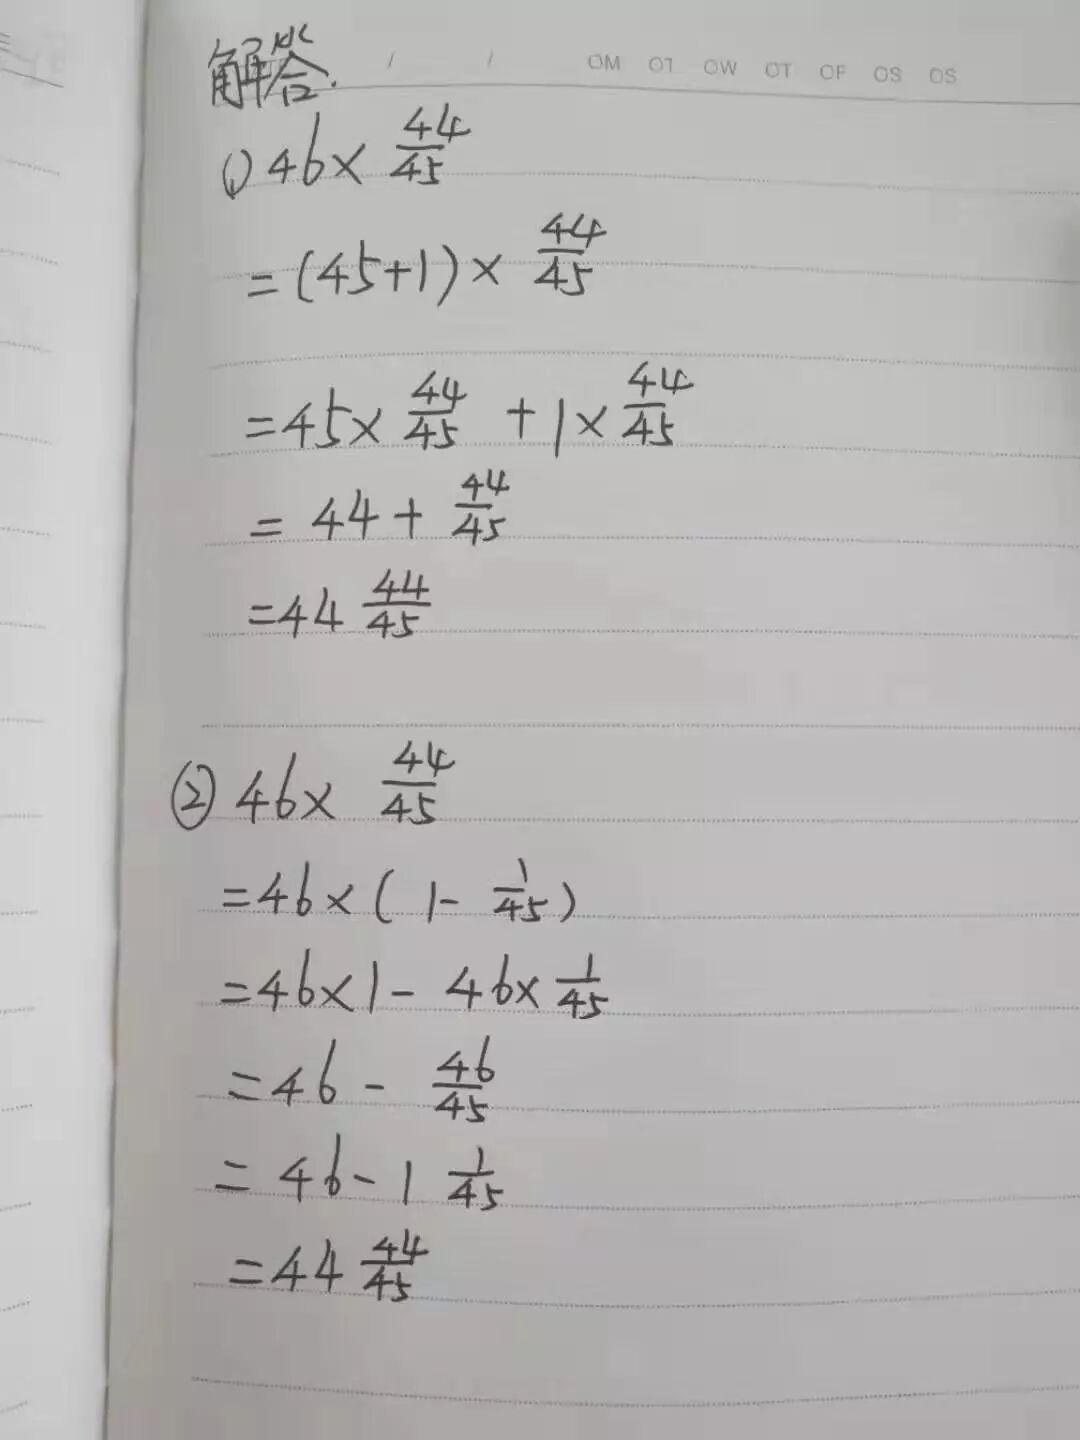 解答.
/ / OM OT OW OT OF OS OS
(1) 46 × 44/45
= (45+1) × 44/45
= 45 × 44/45 + 1 × 44/45
= 44 + 44/45
= 44 44/45
② 46 × 44/45
= 46 × ( 1 - 1/45 )
= 46 × 1 - 46 × 1/45
= 46 - 46/45
= 46 - 1 1/45
= 44 44/45